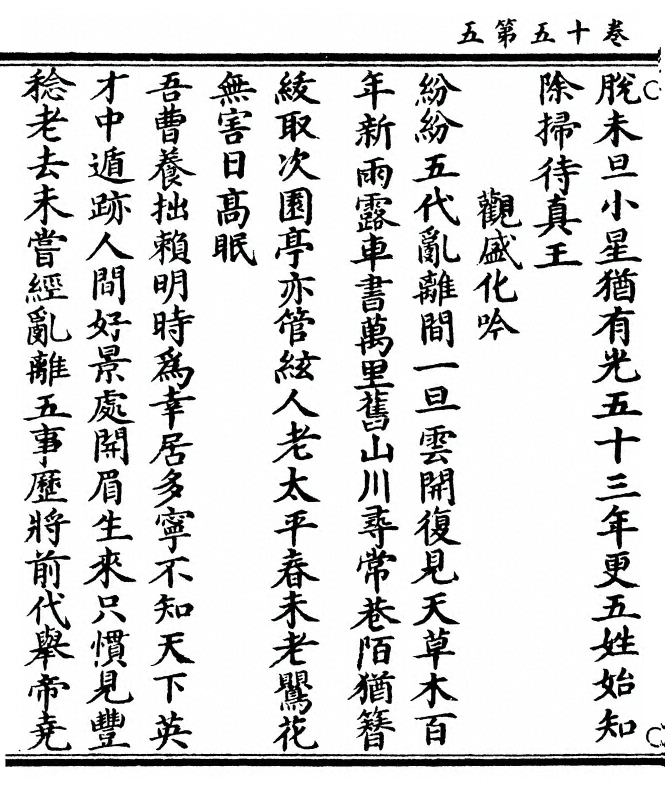 卷十五第五
脫未旦小星猶有光五十三年更五姓始知
除掃待真王
觀盛化吟
紛紛五代亂離間一旦雲開復見天草木百
年新雨露車書萬里舊山川尋常巷陌猶簪
綾取次園亭亦管絃人老太平春未老鸎花
無害日高眠
吾曹養拙賴明時爲幸居多寧不知天下英
才中遁跡人間好景處開眉生來只慣見豐
稔老去未嘗經亂離五事歷將前代舉帝堯